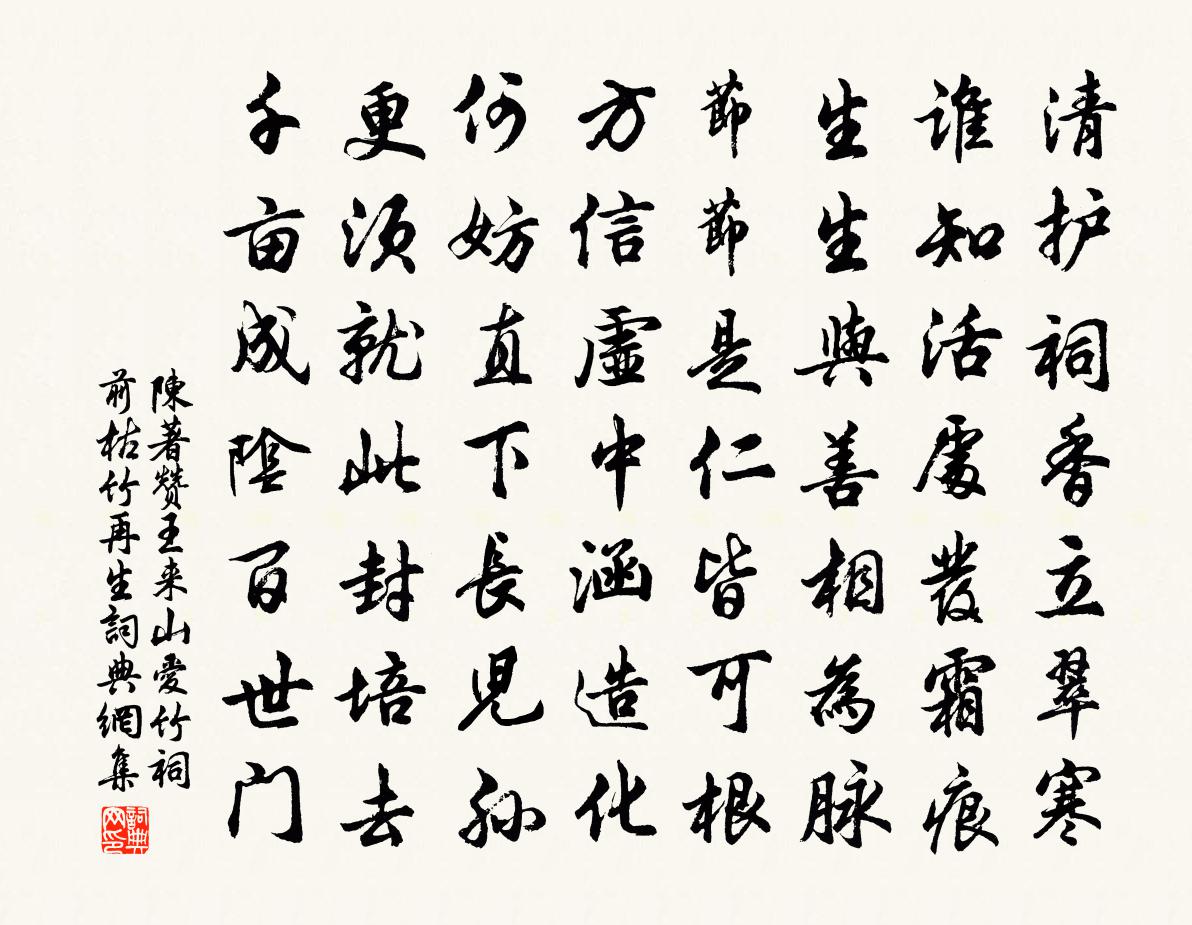 清护祠香立翠寒
谁知活處發霜痕
生生與善相為脉
節節是仁皆可根
方信虛中涵造化
何妨直下長児孙
更须就此封培去
千亩成陰百世门
陳著贊王来山愛竹祠
前枯竹再生詞典網集
詞典网印